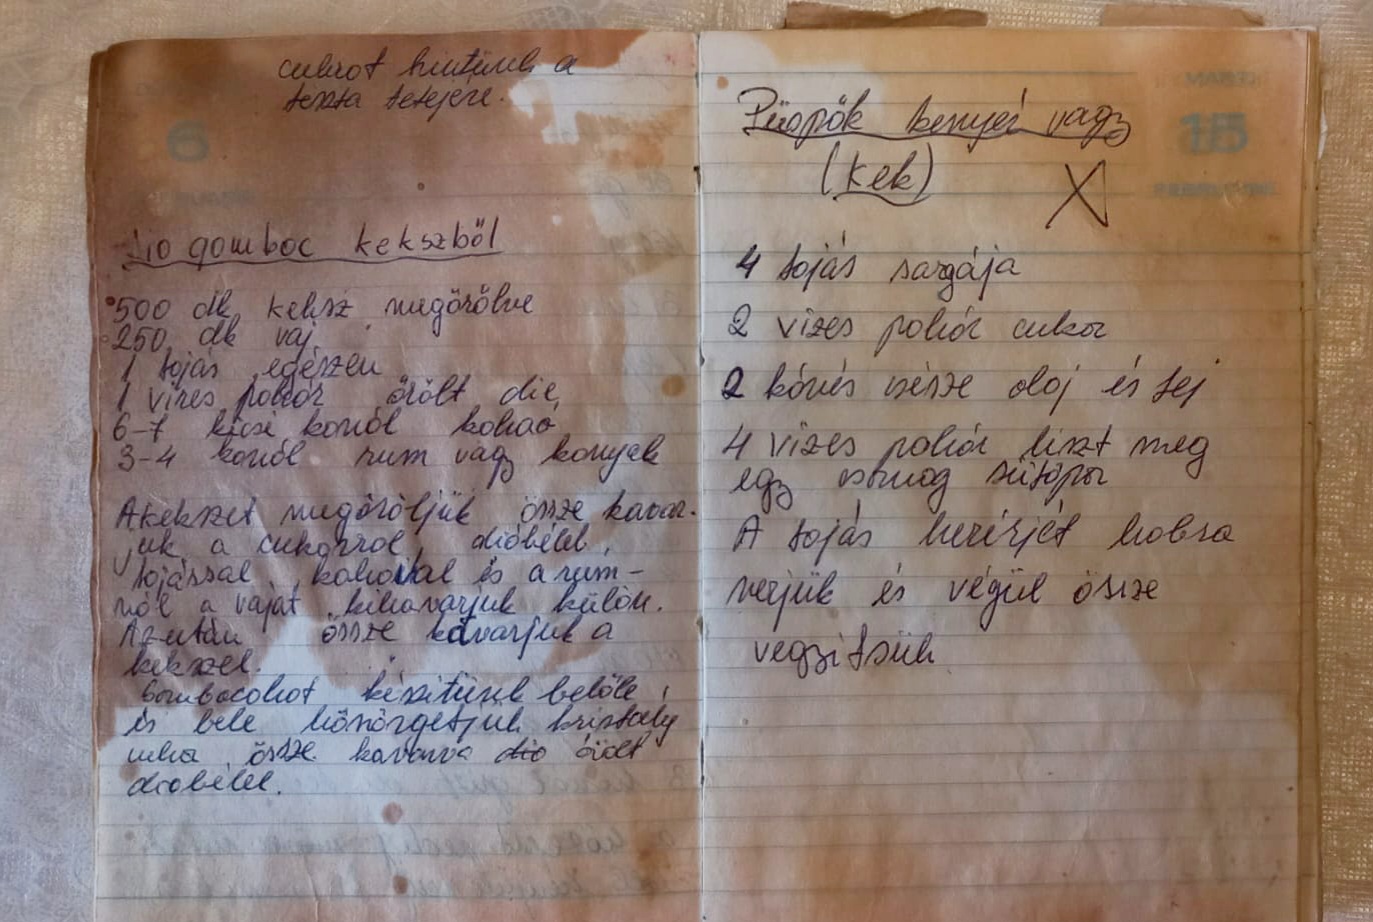 cukrot hintünk a
teszta tetejére.
6
Dio gomboc kekszből
500 dk keksz megörölve
250 dk vaj
1 tojás egészen
1 vizes pohár örölt dio
6-7 kicsi kanál kakaó
3-4 kanál rum vagy konyak
A kekszet megöröljük össze kavar-
juk a cukorrol, dióbéllel,
tojással, kakaoval és a rum-
mól a vajat kikavarjuk külön.
Azután össze kavarjuk a
kekszel.
Gombocokot készitünk belőle
és bele hömörgetjük kristály
cukor össze kavarva dio örölt
dióbélel.
MARȚI
15
FEBRUARIE
Püspök kenyér vagy
(kek)
X
4 tojás sargája
2 vizes pohár cukor
2 kávés csésze olaj és tej
4 vizes pohár liszt meg
egy csomag sütőpor
A tojás heérjét habsa
verjük és végül össze
vegyitsük